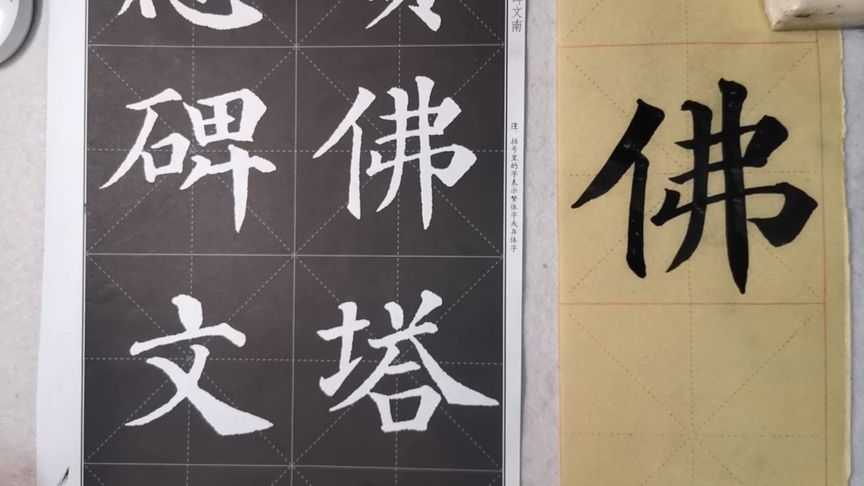 文南
注：括号里的字表示繁体字或异体字
佛塔
碑文
佛